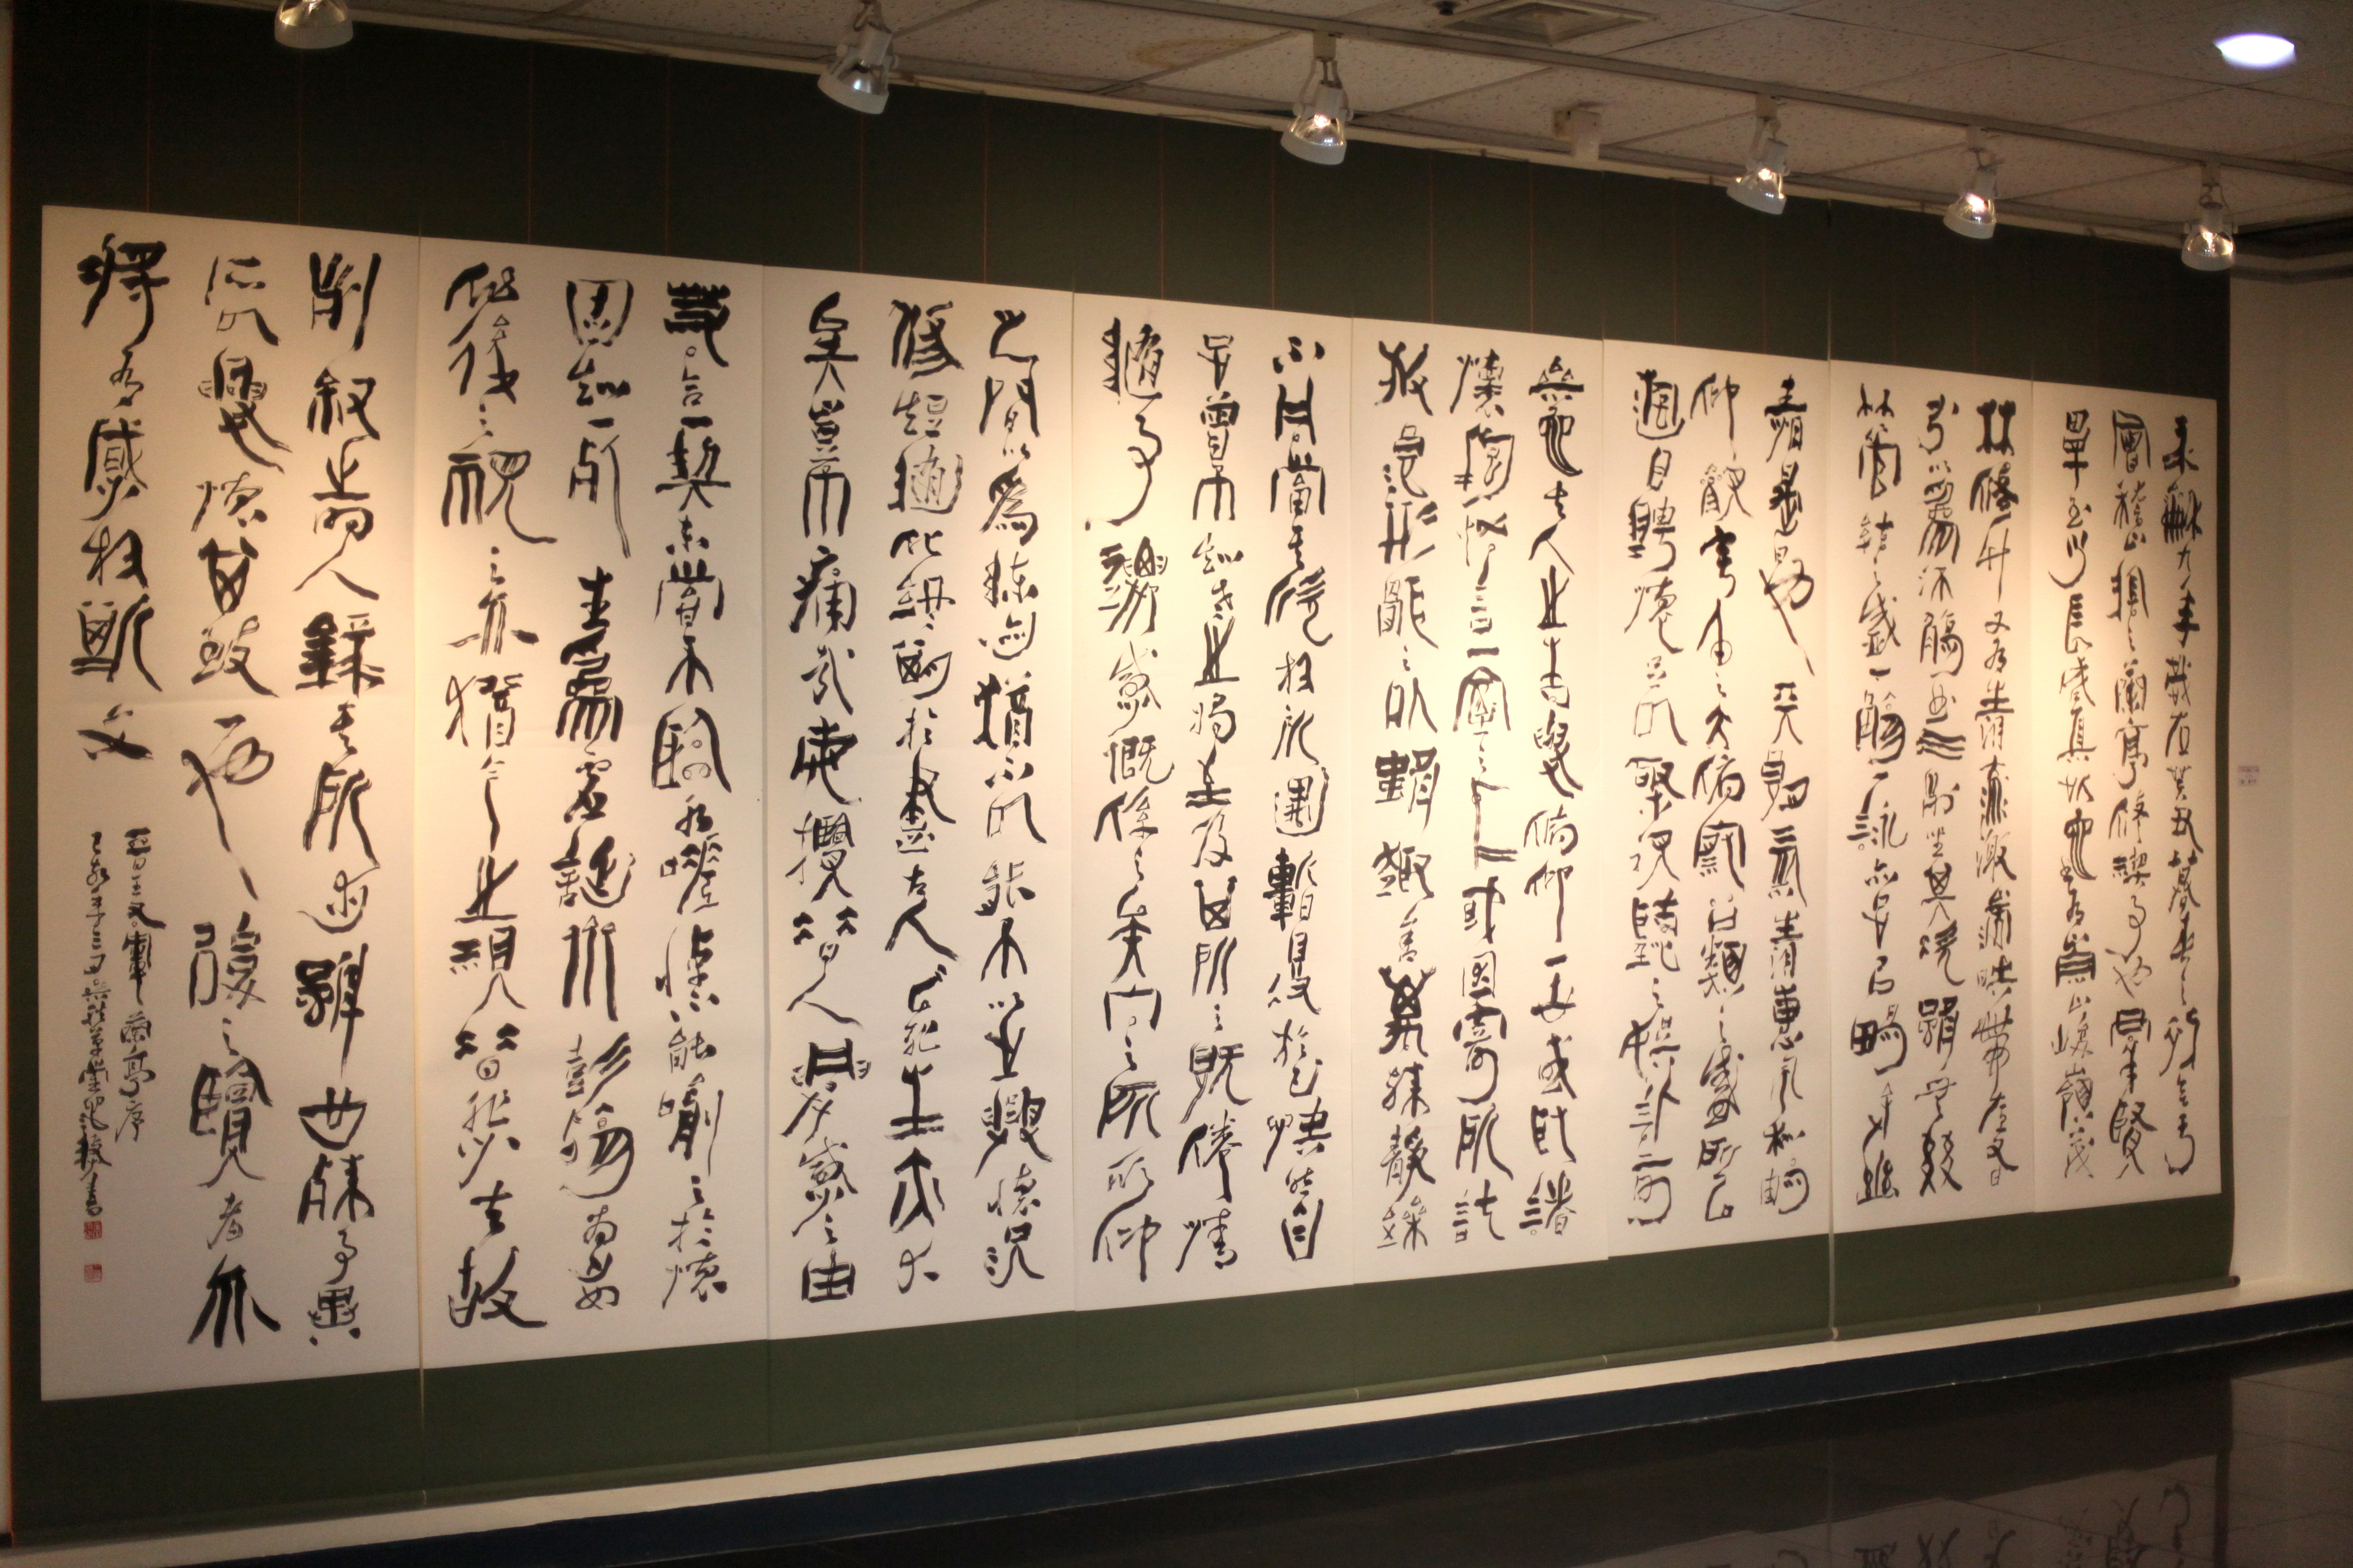 永龢九年歲在癸丑暮春之初會于
會稽山陰之蘭亭修禊事也羣賢
畢至少長咸集此地有崇山峻嶺茂
林修竹又有清流激湍映帶左右
引以為流觴曲水列坐其次雖無絲
竹管弦之盛一觴一詠亦足以暢敘幽
情是日也天朗氣清惠風和暢
仰觀宇宙之大俯察品類之盛所以
遊目騁懷足以極視聽之娛信可
樂也夫人之相與俯仰一世或取諸
懷抱悟言一室之內或因寄所託
放浪形骸之外雖趣舍萬殊靜躁
不同當其欣於所遇暫得於己快然自
足曾不知老之將至及其所之既倦情
隨事遷感慨係之矣向之所欣俛仰
之間以為陳迹猶不能不以之興懷況
修短隨化終期於盡古人云死生亦大
矣豈不痛哉每攬昔人興感之由
若合一契未嘗不臨文嗟悼不能喻之於懷
固知一死生為虛誕齊彭殤為妄
作後之視今亦猶今之視昔悲夫故
列敘時人錄其所述雖世殊事異
所以興懷其致一也後之覽者亦
將有感於斯文
晉王右軍蘭亭序